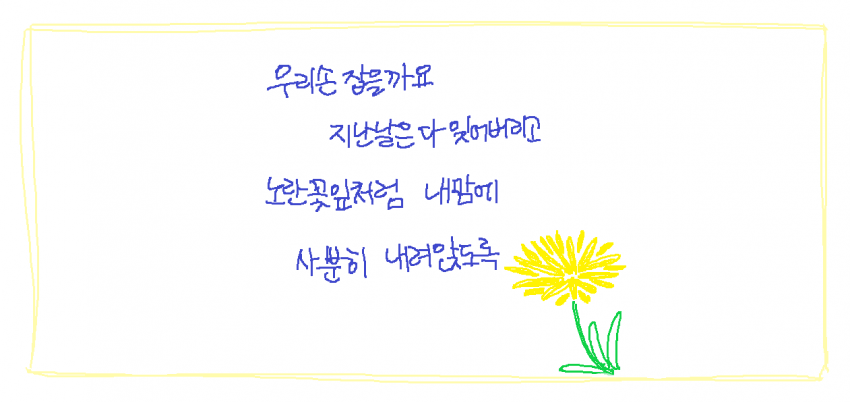 우리손 잡을까요
지난날은 다 잊어버리고
노란꽃잎처럼 내맘에
사뿐히 내려앉도록